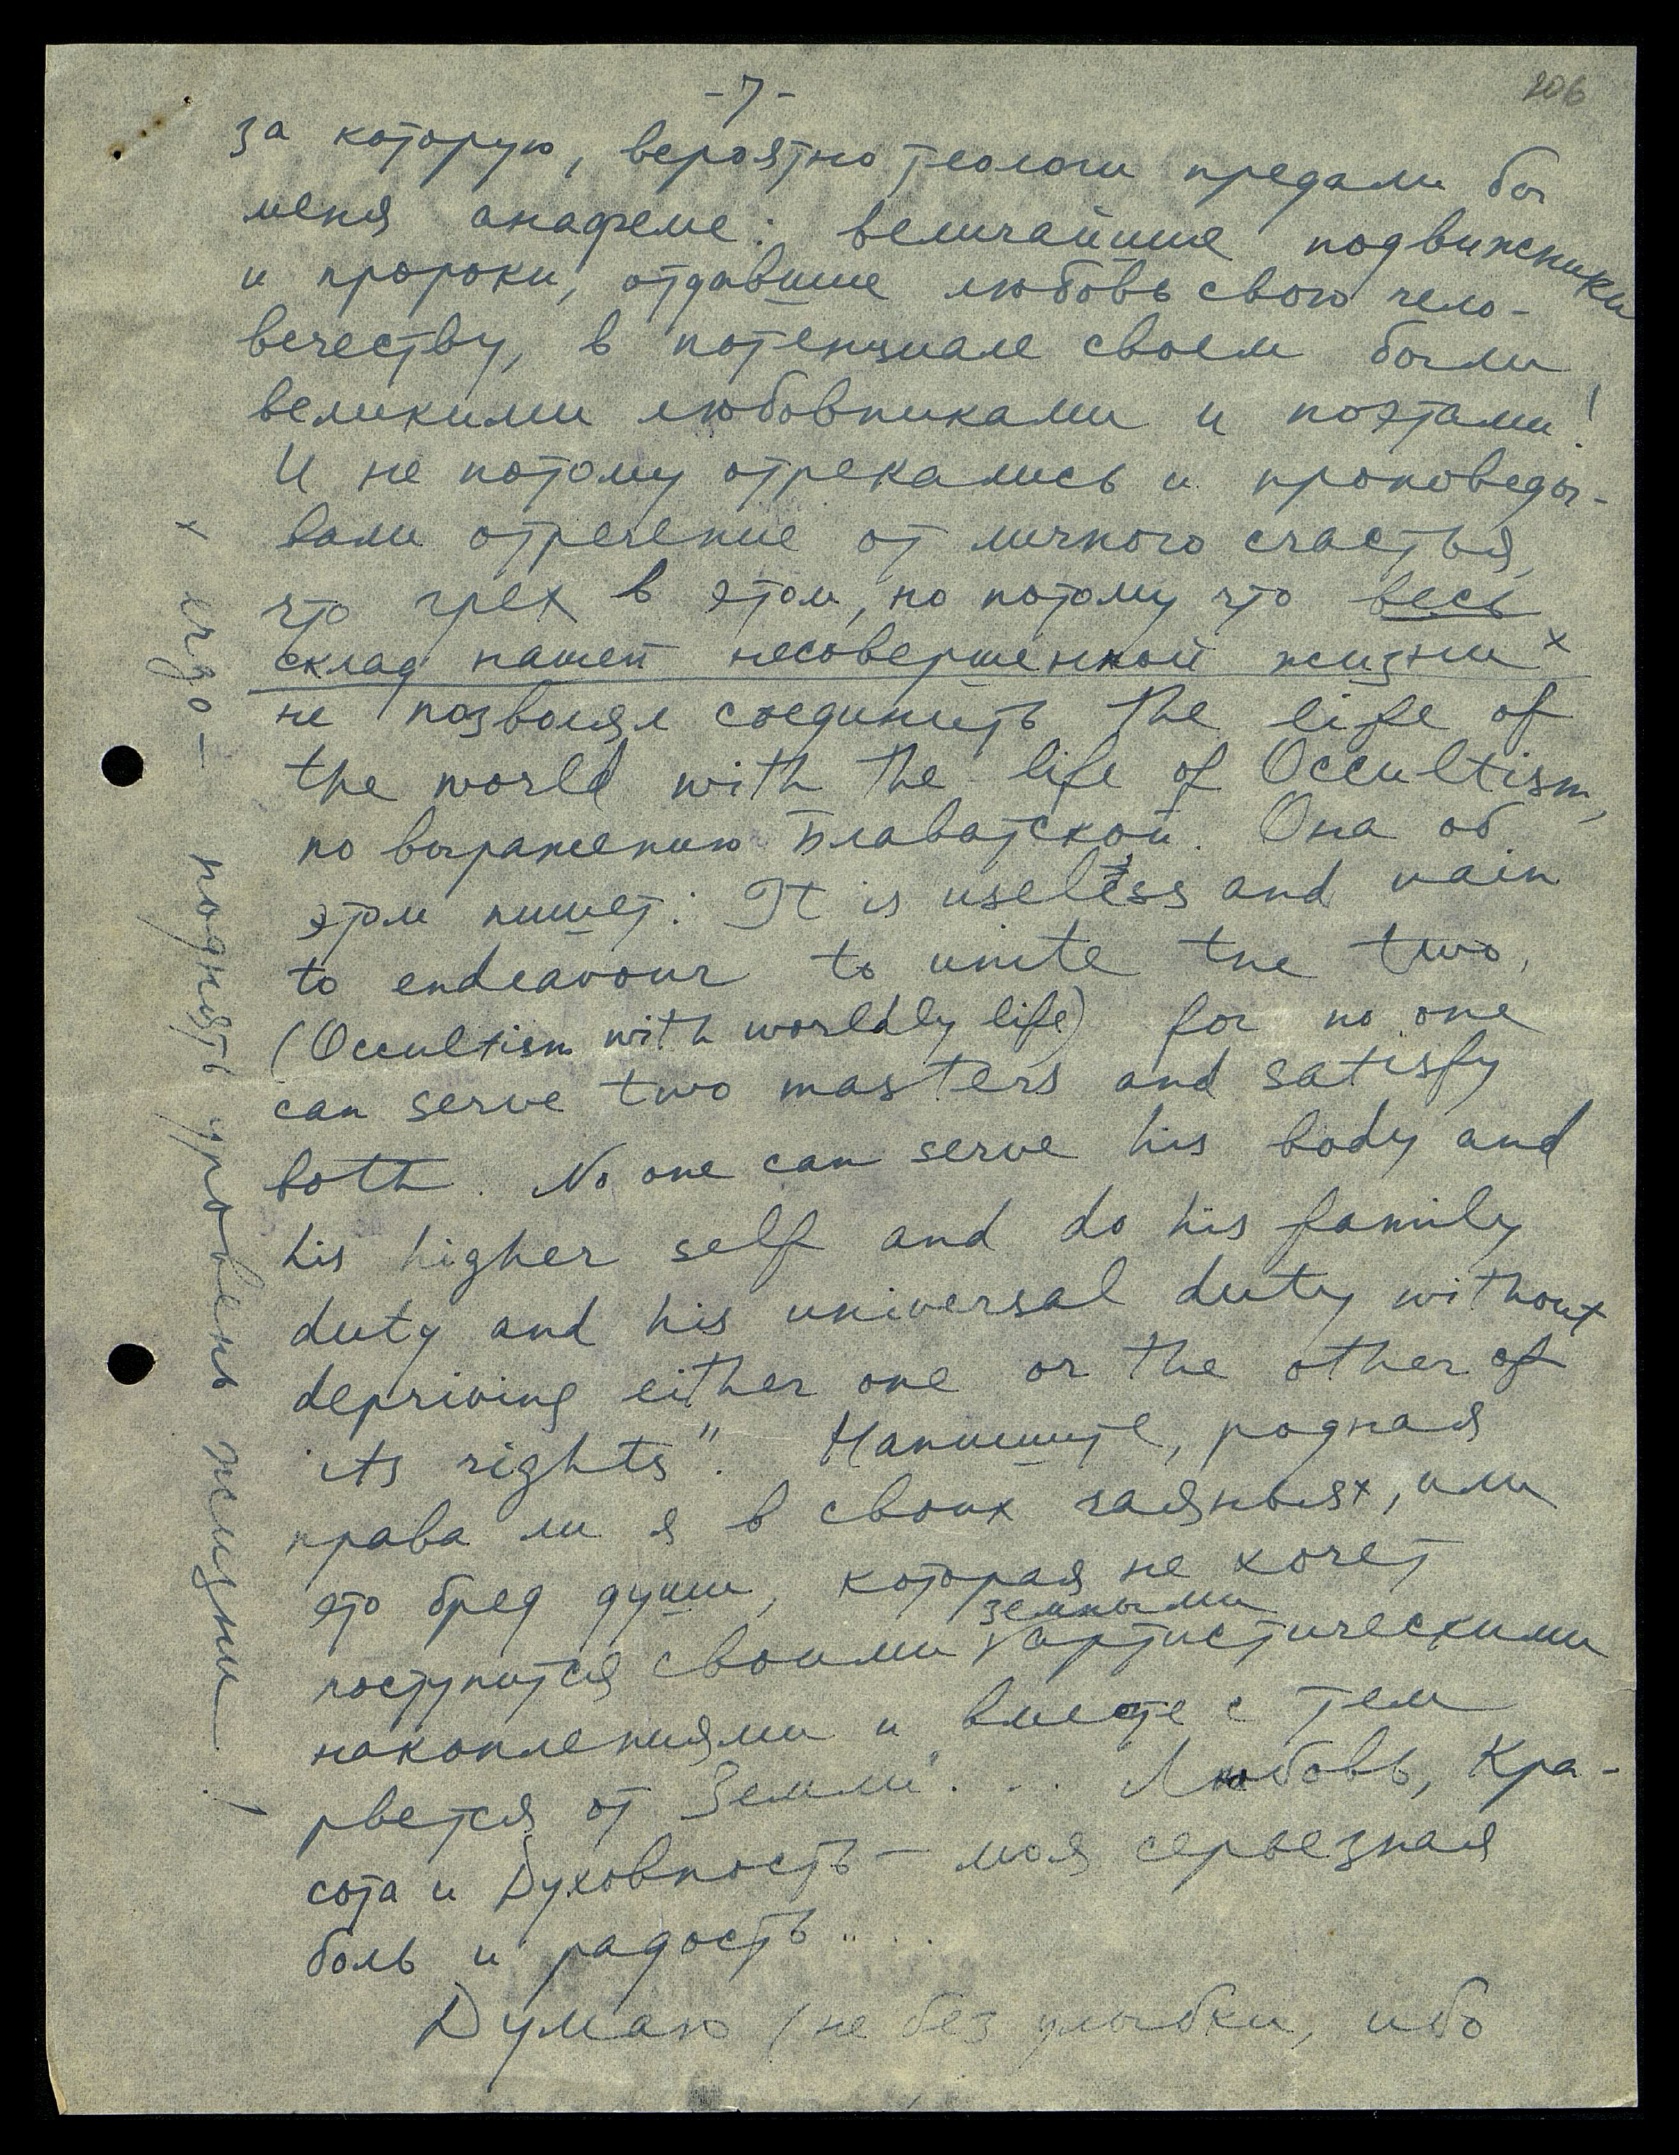 -7-
206
за которую, вероятно теологи предали бы
меня анафеме: величайшие подвижники
и пророки, отдавшие любовь свою чело-
вечеству, в потенциале своем были
великими любовниками и поэтами!
И не потому отрекались и проповеды-
вали отречение от личного счастья,
что грех в этом, но потому что весь
склад нашей несовершенной жизни x
не позволял соединить the life of
the world with the life of Occultism,
по выражению Блаватской. Она об
этом пишет: It is useless and vain
to endeavour to unite the two,
(Occultism with worldly life) for no one
can serve two masters and satisfy
both. No one can serve his body and
his higher self and do his family
duty and his universal duty without
depriving either one or the other of
its rights". Напишите, родная
права ли я в своих чаяньях, или
это бред души, которая не хочет
земными
поступится своими артистическими
накоплениями и вместе с тем
рвется от Земли"... Любовь, Кра-
сота и Духовность – моя серьезная
боль и радость....
Думаю (не без улыбки, ибо
x его – поднять уровень жизни!